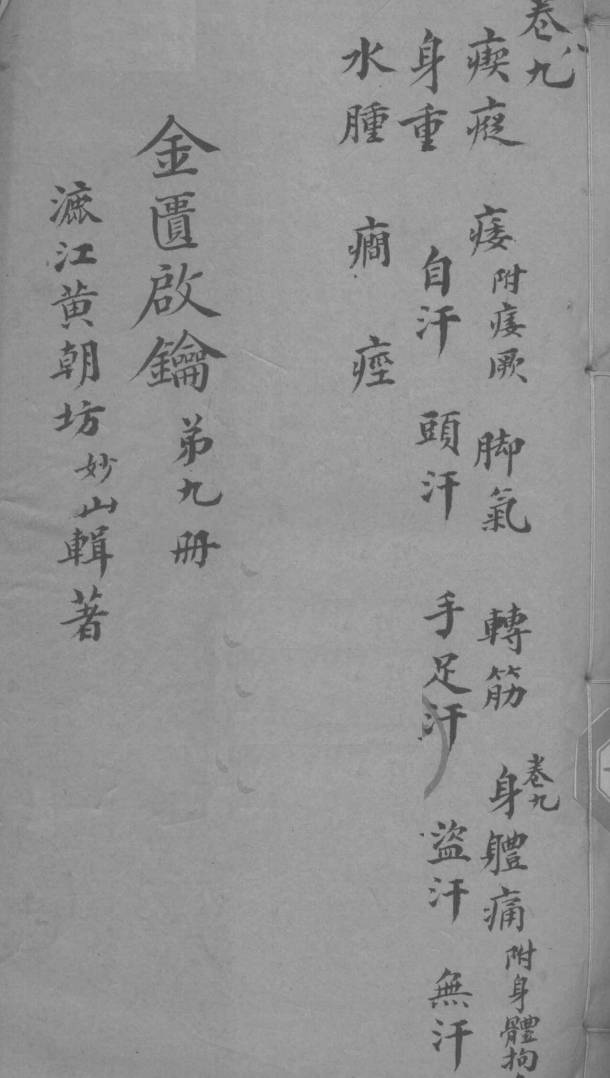 卷八九
瘈瘲 痿附痿厥 脚氣 轉筋 卷九 身體痛附身體拘
身重 自汗 頭汗 手足汗 盜汗 無汗
水腫 癎 痙
金匱啟鑰 弟九册
漉江黄朝坊妙山輯著